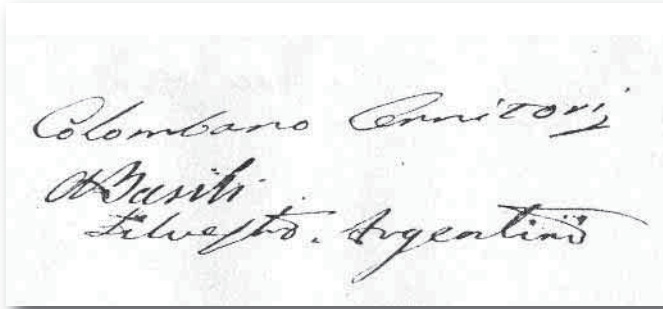 Colombano Cernitori
A Basili
Silvestro. Argentino